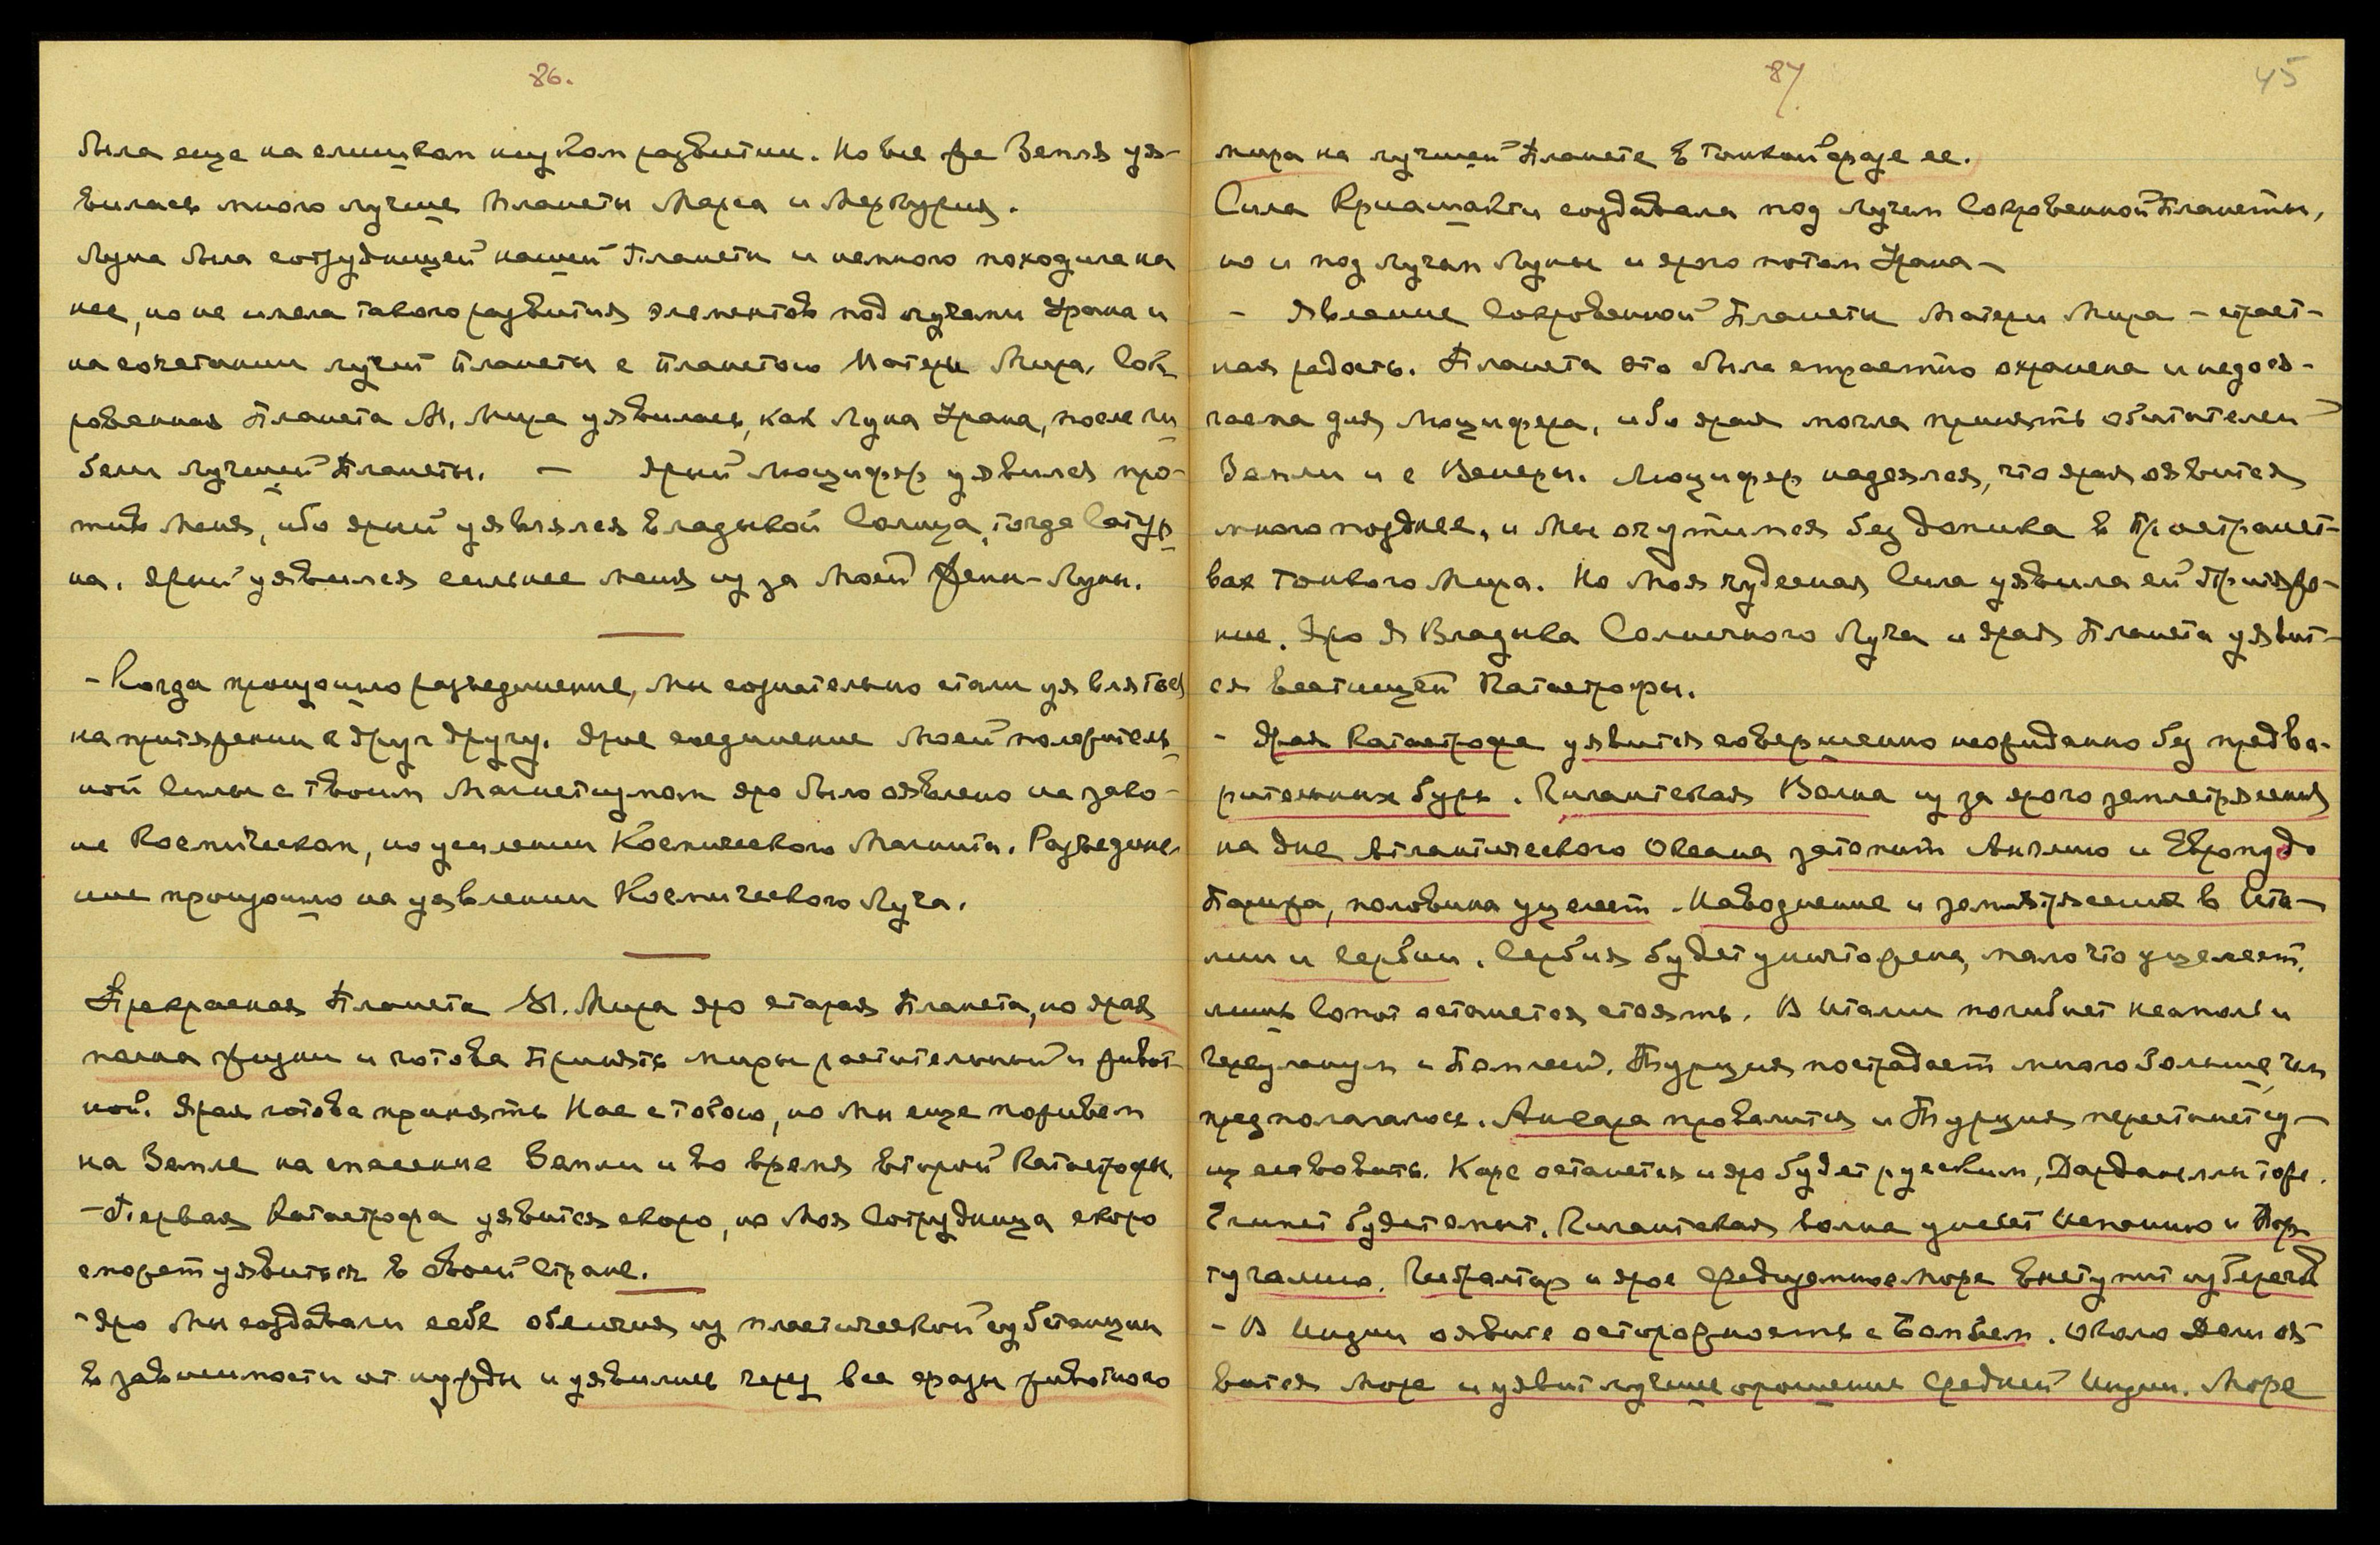 86.
была еще на слишком низком развитии. Но все же Земля уя-
вилась много лучше планеты Марса и Меркурия.
Луна была сотрудницей нашей Планеты и немного походила на
нее, но не имела такого развития элементов под лучами Урана и
на сочетании лучей Планеты с Планетою Матери Мира. Сок-
ровенная Планета М. Мира уявилась, как Луна Урана, после ги-
бели лучшей Планеты. — Ярый Люцифер уявился про-
тив Меня, ибо ярый уявлялся Владыкой Солнца, тогда Сатур-
на. Ярый уявился сильнее меня из за Моей Жены-Луны.
- Когда произошло разъединение, Мы сознательно стали уявляться
на притяжении к друг другу. Ярое соединение Моей положитель-
ной Силы с твоим Магнетизмом яро было оявлено на зако-
не Космическом, на усилении Космического Магнита. Разъедине-
ние произошло на уявлении Космического Луча.
Прекрасная Планета М. Мира яро старая Планета, но ярая
полна жизни и готова принять миры растительный и живот-
ной. Ярая готова принять Нас с тобою, но Мы еще поживем
на Земле на спасение Земли и во время второй Катастрофы.
- Первая Катастрофа уявится скоро, но Моя Сотрудница скоро
сможет уявиться в своей Стране.
- Яро Мы создавали себе обличия из пластической субстанции
в зависимости от нужды и уявились через все фазы животного
87
45
мира на лучшей Планете в тонкой фазе ее.
Сила Криашакти создавала под лучем Сокровенной Планеты,
но и под лучем Луны и ярого потом Урана—
- Явление Сокровенной Планеты Матери Мира - страст-
ная радость. Планета эта была страстно охранена и недося-
гаема для Люцифера, ибо ярая могла принять обитателей
Земли и с Венеры. Люцифер надеялся, что ярая оявится
много позднее, и Мы очутимся без домика в пространст-
вах тонкого Мира. Но Моя чудесная Сила уявила ей Притяже-
ние. Яро Я Владыка Солнечного Луча и ярая Планета уявит-
ся вестницей Катастрофы.
- Ярая Катастрофа уявится совершенно неожиданно без предва-
рительных бурь. Гигантская Волна из за ярого землетрясения
на дне Атлантического Океана затопит Англию и Европу до
Парижа, половина уцелеет. Наводнение и землетрясения в Ита-
лии и Сербии. Сербия будет уничтожена, мало что уцелеет,
лишь Сопот останется стоять. В Италии погибнет Неаполь и
Геркуланум и Помпеи. Турция пострадает много больше, чем
предполагалось. Анкара провалится и Турция перестанет су-
ществовать. Карс останется и яро будет русским, Дарданеллы тоже.
Египет будет смыт. Гигантская волна унесет Испанию и Пор-
тугалию. Гибралтар и ярое Средиземное море выступит из берегов
- В Индии оявите осторожность с Бомбеем. Около Дели оя-
вится море и уявит лучшее орошение Средней Индии. Море